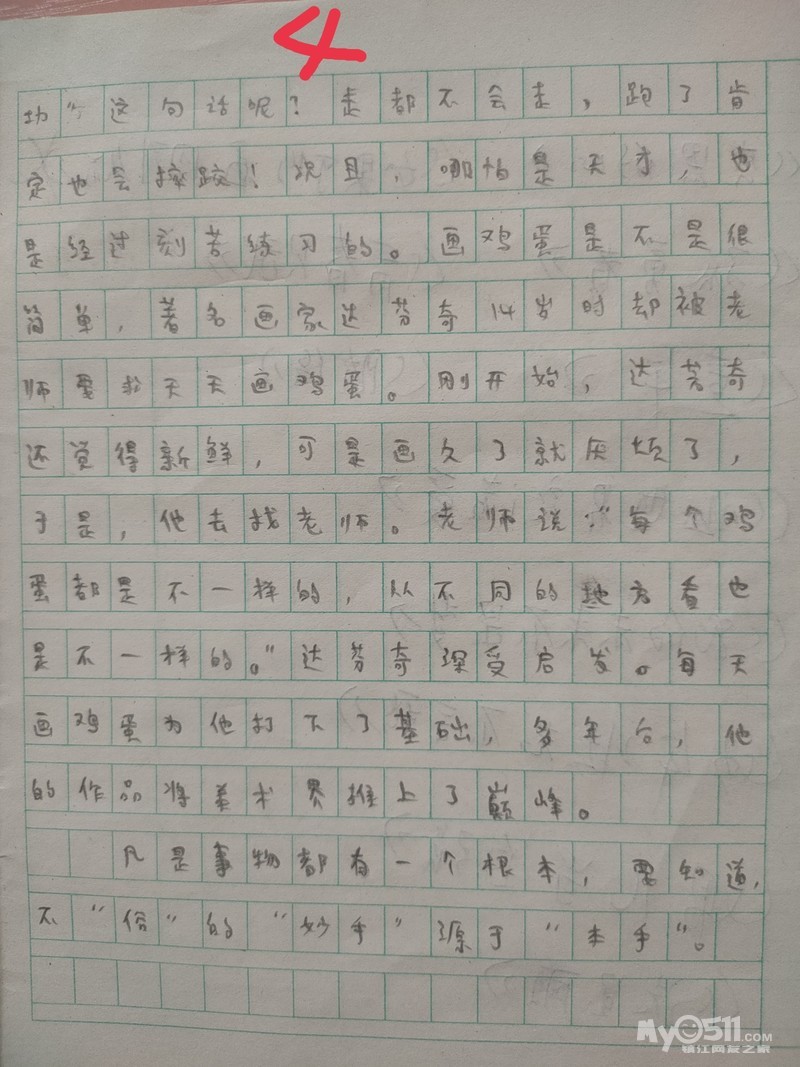 4
功”这句话呢？走都不会走，跑了肯
定也会摔跤！况且，哪怕是天才，也
是经过刻苦练习的。画鸡蛋是不是很
简单，著名画家达芬奇14岁时却被老
师要求天天画鸡蛋。刚开始，达芬奇
还觉得新鲜，可是画久了就厌烦了，
于是，他去找老师。老师说：“每个鸡
蛋都是不一样的，从不同的地方看也
是不一样的。”达芬奇深受启发。每天
画鸡蛋为他打下了基础，多年后，他
的作品将美术界推上了巅峰。
凡是事物都有一个根本，要知道，
不“俗”的“妙手”源于“本手”。
My0511.COM
镇江网友之家